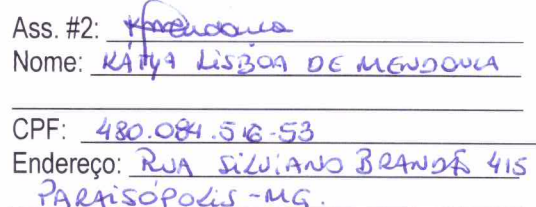 Ass. #2: KMendonca
Nome: KÁTYA LISBOA DE MENDONCA
CPF: 480.084.516-53
Endereço: RUA SILVIANO BRANDÃO 415
PARAISÓPOLIS-MG.